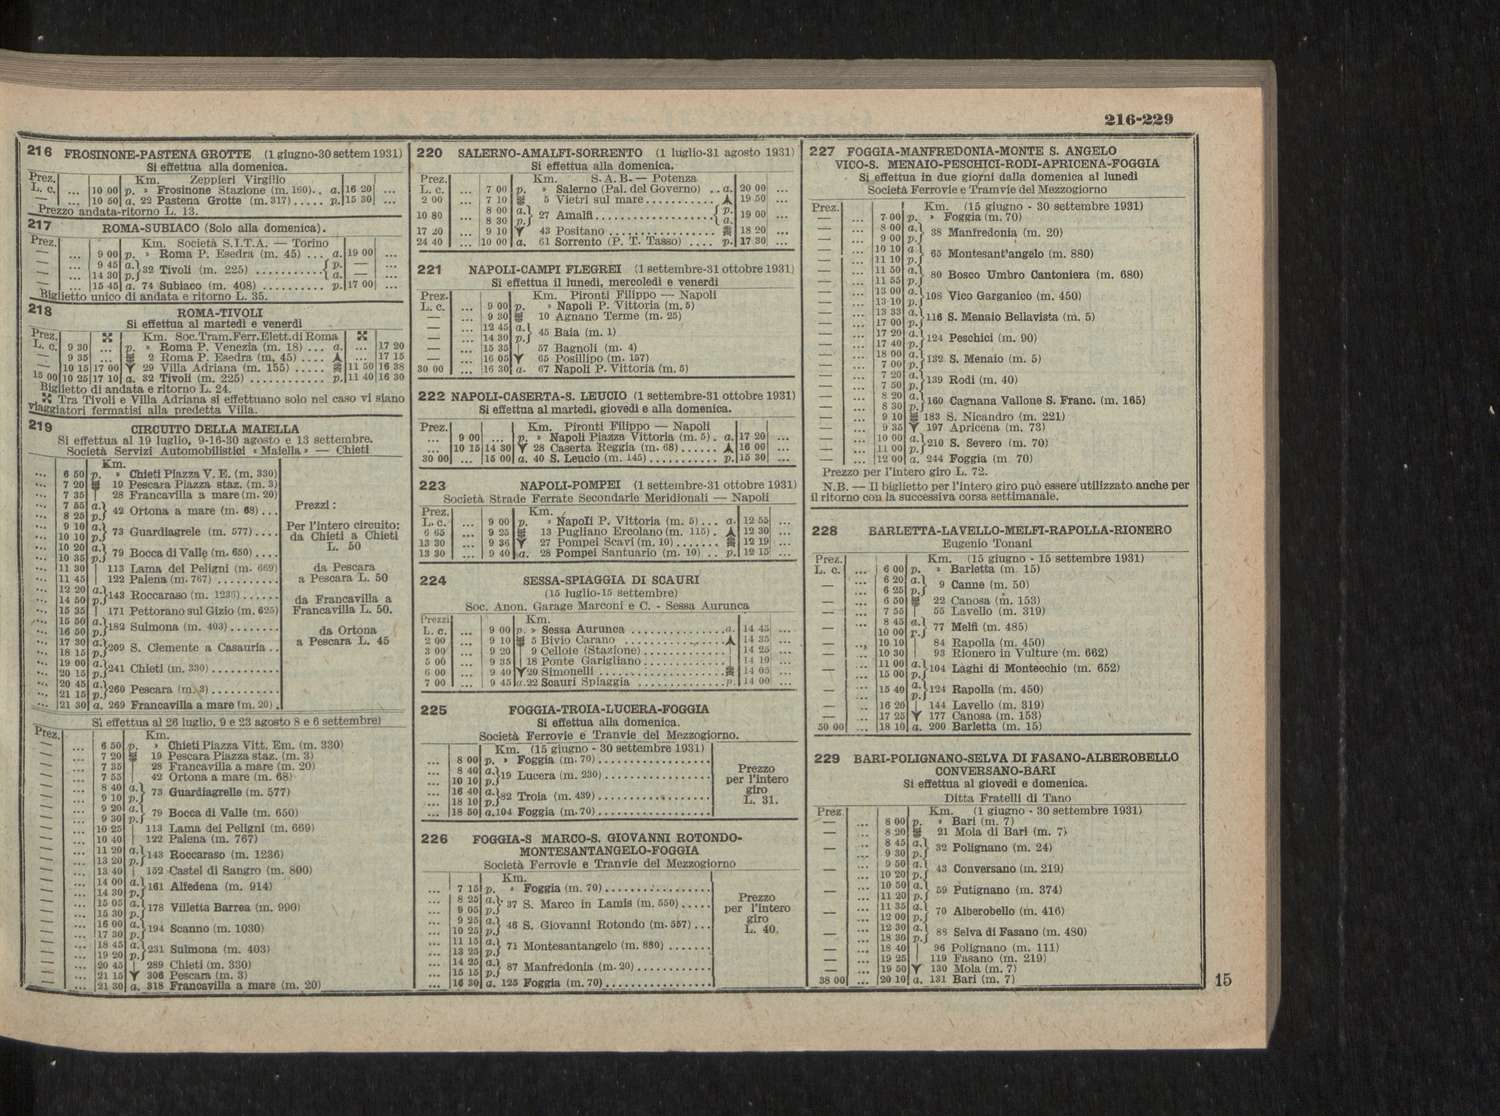 216-229
216 FROSINONE-PASTENA GROTTE (1 giugno-30 settem 1931)
Si effettua alla domenica.
Prez. Km. Zeppieri Virgilio
L. c. ... 10 00 p. » Frosinone Stazione (m. 160).. a. 16 20 ...
— ... 10 50 a. 22 Pastena Grotte (m. 317)..... p. 15 30 ...
Prezzo andata-ritorno L. 13.
217 ROMA-SUBIACO (Solo alla domenica).
Prez. Km. Società S.I.T.A. — Torino
— ... 9 00 p. » Roma P. Esedra (m. 45) ... a. 19 00 ...
— ... 9 45 a. } 32 Tivoli (m. 225) .......... { p. — ...
— ... 14 30 p. } { a. — ...
— ... 15 45 a. 74 Subiaco (m. 408) .......... p. 17 00 ...
Biglietto unico di andata e ritorno L. 35.
218 ROMA-TIVOLI
Si effettua al martedì e venerdì
Prez. Km. Soc.Tram.Ferr.Elett.di Roma
L. c. 9 30 ... p. » Roma P. Venezia (m. 18) ... a. ... 17 20
— 9 35 ... 2 Roma P. Esedra (m, 45) .... ... 17 15
— 10 15 17 00 29 Villa Adriana (m. 155) ..... 11 50 16 38
15 00 10 25 17 10 a. 32 Tivoli (m. 225) ........... p. 11 40 16 30
Biglietto di andata e ritorno L. 24.
Tra Tivoli e Villa Adriana si effettuano solo nel caso vi siano
viaggiatori fermatisi alla predetta Villa.
219 CIRCUITO DELLA MAIELLA
Si effettua al 19 luglio, 9-16-30 agosto e 13 settembre.
Società Servizi Automobilistici «Maiella» — Chieti
Km.
... 6 50 p. » Chieti Piazza V. E. (m. 330)
... 7 20 19 Pescara Piazza staz. (m. 3)
... 7 35 | 28 Francavilla a mare (m. 20)
... 7 55 a. } 42 Ortona a mare (m. 68) ...
... 8 25 p. }
... 9 10 a. } 73 Guardiagrele (m. 577)....
... 10 10 p. }
... 10 20 a. } 79 Bocca di Valle (m. 650)....
... 10 35 p. }
... 11 30 | 113 Lama dei Peligni (m. 669)
... 11 45 | 122 Palena (m. 767) .........
... 12 20 a. } 143 Roccaraso (m. 1236)......
... 14 50 p. }
... 15 35 | 171 Pettorano sul Gizio (m. 625)
... 15 50 a. } 182 Sulmona (m. 403)........
... 16 50 p. }
... 17 30 a. } 209 S. Clemente a Casauria ..
... 18 15 p. }
... 19 00 a. } 241 Chieti (m. 330)..........
... 20 15 p. }
... 20 45 a. } 260 Pescara (m. 3)..........
... 21 15 p. }
... 21 30 a. 269 Francavilla a mare (m. 20) .
Prezzi :
Per l'intero circuito:
da Chieti a Chieti
L. 50
da Pescara
a Pescara L. 50
da Francavilla a
Francavilla L. 50.
da Ortona
a Pescara L. 45
Si effettua al 26 luglio, 9 e 23 agosto 8 e 6 settembre)
Prez. Km.
— ... 6 50 p. » Chieti Piazza Vitt. Em. (m. 330)
— ... 7 20 19 Pescara Piazza staz. (m. 3)
— ... 7 35 | 28 Francavilla a mare (m. 20)
— ... 7 55 | 42 Ortona a mare (m. 68)
— ... 8 40 a. } 73 Guardiagrelle (m. 577)
— ... 9 10 p. }
— ... 9 20 a. } 79 Bocca di Valle (m. 650)
— ... 9 30 p. }
— ... 10 25 | 113 Lama dei Peligni (m. 669)
— ... 10 40 | 122 Palena (m. 767)
— ... 11 20 a. } 143 Roccaraso (m. 1236)
— ... 13 20 p. }
— ... 13 40 | 152 Castel di Sangro (m. 800)
— ... 14 00 a. } 161 Alfedena (m. 914)
— ... 14 30 p. }
— ... 15 05 a. } 178 Villetta Barrea (m. 990)
— ... 15 30 p. }
— ... 16 00 a. } 194 Scanno (m. 1030)
— ... 17 30 p. }
— ... 18 45 a. } 231 Sulmona (m. 403)
— ... 19 20 p. }
— ... 20 45 | 289 Chieti (m. 330)
— ... 21 15 306 Pescara (m. 3)
— ... 21 30 a. 318 Francavilla a mare (m. 20)
220 SALERNO-AMALFI-SORRENTO (1 luglio-31 agosto 1931)
Si effettua alla domenica.
Prez. Km. S. A. B. — Potenza
L. c. ... 7 00 p. » Salerno (Pal. del Governo) .. a. 20 00 ...
2 00 ... 7 10 5 Vietri sul mare........... 19 50 ...
10 80 ... 8 00 a. } 27 Amalfi................. { p. 19 00 ...
8 30 p. } { a.
17 20 ... 9 10 43 Positano ................ 18 20 ...
24 40 ... 10 00 a. 61 Sorrento (P. T. Tasso) .... p. 17 30 ...
221 NAPOLI-CAMPI FLEGREI (1 settembre-31 ottobre 1931)
Si effettua il lunedì, mercoledì e venerdì
Prez. Km. Pironti Filippo — Napoli
L. c. ... 9 00 p. » Napoli P. Vittoria (m. 5)
— ... 9 30 10 Agnano Terme (m. 25)
— ... 12 45 a. } 45 Baia (m. 1)
— ... 14 30 p. }
— ... 15 35 | 57 Bagnoli (m. 4)
— ... 16 05 65 Posillipo (m. 157)
30 00 ... 16 30 a. 67 Napoli P. Vittoria (m. 5)
222 NAPOLI-CASERTA-S. LEUCIO (1 settembre-31 ottobre 1931)
Si effettua al martedì, giovedì e alla domenica.
Prez. Km. Pironti Filippo — Napoli
... 9 00 ... p. » Napoli Piazza Vittoria (m. 5) . a. 17 20 ...
... 10 15 14 30 28 Caserta Reggia (m. 68)...... 16 00 ...
30 00 ... 15 00 a. 40 S. Leucio (m. 145)........... p. 15 30 ...
223 NAPOLI-POMPEI (1 settembre-31 ottobre 1931)
Società Strade Ferrate Secondarie Meridionali — Napoli
Prez. Km.
L. c. ... 9 00 p. » Napoli P. Vittoria (m. 5)... a. 12 55 ...
6 65 ... 9 25 13 Pugliano Ercolano (m. 115) . 12 30 ...
13 30 ... 9 36 27 Pompei Scavi (m. 10)....... 12 19 ...
13 30 ... 9 40 a. 28 Pompei Santuario (m. 10) .. p. 12 15 ...
224 SESSA-SPIAGGIA DI SCAURI
(15 luglio-15 settembre)
Soc. Anon. Garage Marconi e C. - Sessa Aurunca
Prezzi Km.
L. c. ... 9 00 p. » Sessa Aurunca ..............a. 14 45 ...
2 00 ... 9 10 5 Bivio Carano ............... 14 35 ...
3 00 ... 9 20 9 Celloie (Stazione)........... 14 25 ...
5 00 ... 9 35 18 Ponte Garigliano........... 14 10 ...
6 00 ... 9 40 20 Simonelli .................. 14 05 ...
7 00 ... 9 45 a. 22 Scauri Spiaggia .............p. 14 00 ...
225 FOGGIA-TROIA-LUCERA-FOGGIA
Si effettua alla domenica.
Società Ferrovie e Tranvie del Mezzogiorno.
Km. (15 giugno - 30 settembre 1931)
... 8 00 p. » Foggia (m. 70)................
... 8 40 a. } 19 Lucera (m. 230)...............
... 10 10 p. }
... 16 40 a. } 82 Troia (m. 439)................
... 18 10 p. }
... 18 50 a. 104 Foggia (m. 70)................
Prezzo
per l'intero
giro
L. 31.
226 FOGGIA-S MARCO-S. GIOVANNI ROTONDO-
MONTESANTANGELO-FOGGIA
Società Ferrovie e Tranvie del Mezzogiorno
Km.
... 7 15 p. » Foggia (m. 70)................
... 8 25 a. } 37 S. Marco in Lamis (m. 550).....
... 9 05 p. }
... 9 25 a. } 46 S. Giovanni Rotondo (m. 557)...
... 10 25 p. }
... 11 15 a. } 71 Montesantangelo (m. 880) .......
... 13 25 p. }
... 14 25 a. } 87 Manfredonia (m. 20)...........
... 15 15 p. }
... 16 30 a. 125 Foggia (m. 70)................
Prezzo
per l'intero
giro
L. 40.
227 FOGGIA-MANFREDONIA-MONTE S. ANGELO
VICO-S. MENAIO-PESCHICI-RODI-APRICENA-FOGGIA
Si effettua in due giorni dalla domenica al lunedì
Società Ferrovie e Tramvie del Mezzogiorno
Prez. Km. (15 giugno - 30 settembre 1931)
— ... 7 00 p. » Foggia (m. 70)
— ... 8 00 a. } 38 Manfredonia (m. 20)
— ... 9 00 p. }
— ... 10 10 a. } 65 Montesant'angelo (m. 880)
— ... 11 10 p. }
— ... 11 50 a. } 80 Bosco Umbro Cantoniera (m. 680)
— ... 11 55 p. }
— ... 13 00 a. } 108 Vico Garganico (m. 450)
— ... 13 10 p. }
— ... 13 33 a. } 116 S. Menaio Bellavista (m. 5)
— ... 17 00 p. }
— ... 17 20 a. } 124 Peschici (m. 90)
— ... 17 40 p. }
— ... 18 00 a. } 132 S. Menaio (m. 5)
— ... 7 00 p. }
— ... 7 20 a. } 139 Rodi (m. 40)
— ... 7 50 p. }
— ... 8 20 a. } 160 Cagnana Vallone S. Franc. (m. 165)
— ... 8 30 p. }
— ... 9 10 183 S. Nicandro (m. 221)
— ... 9 35 197 Apricena (m. 73)
— ... 10 00 a. } 210 S. Severo (m. 70)
— ... 11 00 p. }
— ... 12 00 a. 244 Foggia (m. 70)
Prezzo per l'intero giro L. 72.
N.B. — Il biglietto per l'intero giro può essere utilizzato anche per
il ritorno con la successiva corsa settimanale.
228 BARLETTA-LAVELLO-MELFI-RAPOLLA-RIONERO
Eugenio Tonani
Prez. Km. (15 giugno - 15 settembre 1931)
L. c. ... 6 00 p. » Barletta (m. 15)
— ... 6 20 a. } 9 Canne (m. 50)
... 6 25 p. }
— ... 6 50 22 Canosa (m. 153)
— ... 7 55 | 55 Lavello (m. 319)
— ... 8 45 a. } 77 Melfi (m. 485)
10 00 p. }
— ... 10 10 | 84 Rapolla (m. 450)
— ... 10 30 | 93 Rionero in Vulture (m. 662)
— ... 11 00 a. } 104 Laghi di Montecchio (m. 652)
15 00 p. }
— ... 15 40 a. } 124 Rapolla (m. 450)
p. }
— ... 16 20 | 144 Lavello (m. 319)
— ... 17 25 177 Canosa (m. 153)
50 00 ... 18 10 a. 200 Barletta (m. 15)
229 BARI-POLIGNANO-SELVA DI FASANO-ALBEROBELLO
CONVERSANO-BARI
Si effettua al giovedì e domenica.
Ditta Fratelli di Tano
Prez. Km. (1 giugno - 30 settembre 1931)
— ... 8 00 p. » Bari (m. 7)
— ... 8 20 21 Mola di Bari (m. 7)
— ... 8 45 a. } 32 Polignano (m. 24)
9 30 p. }
— ... 9 50 a. } 43 Conversano (m. 219)
10 20 p. }
— ... 10 50 a. } 59 Putignano (m. 374)
11 20 p. }
— ... 11 35 a. } 70 Alberobello (m. 416)
12 00 p. }
— ... 12 30 a. } 88 Selva di Fasano (m. 480)
18 30 p. }
— ... 18 40 | 96 Polignano (m. 111)
— ... 19 25 | 119 Fasano (m. 219)
— ... 19 50 130 Mola (m. 7)
38 00 ... 20 10 a. 131 Bari (m. 7)
15